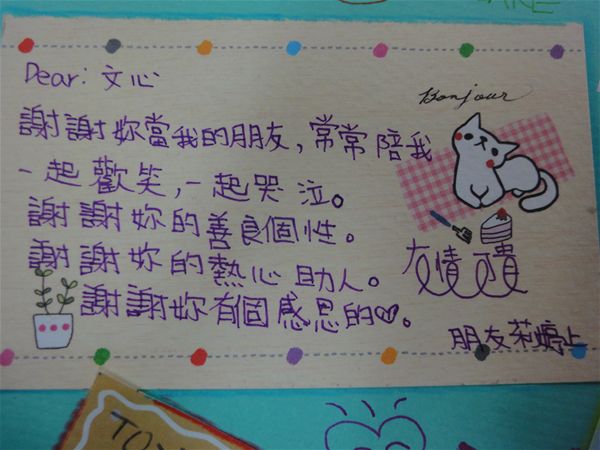 Dear: 文心
Bonjour
謝謝妳當我的朋友，常常陪我
一起歡笑，一起哭泣。
謝謝妳的善良個性。
謝謝妳的熱心助人。
謝謝妳有個感恩的♡。
友情可貴
朋友莉婷上